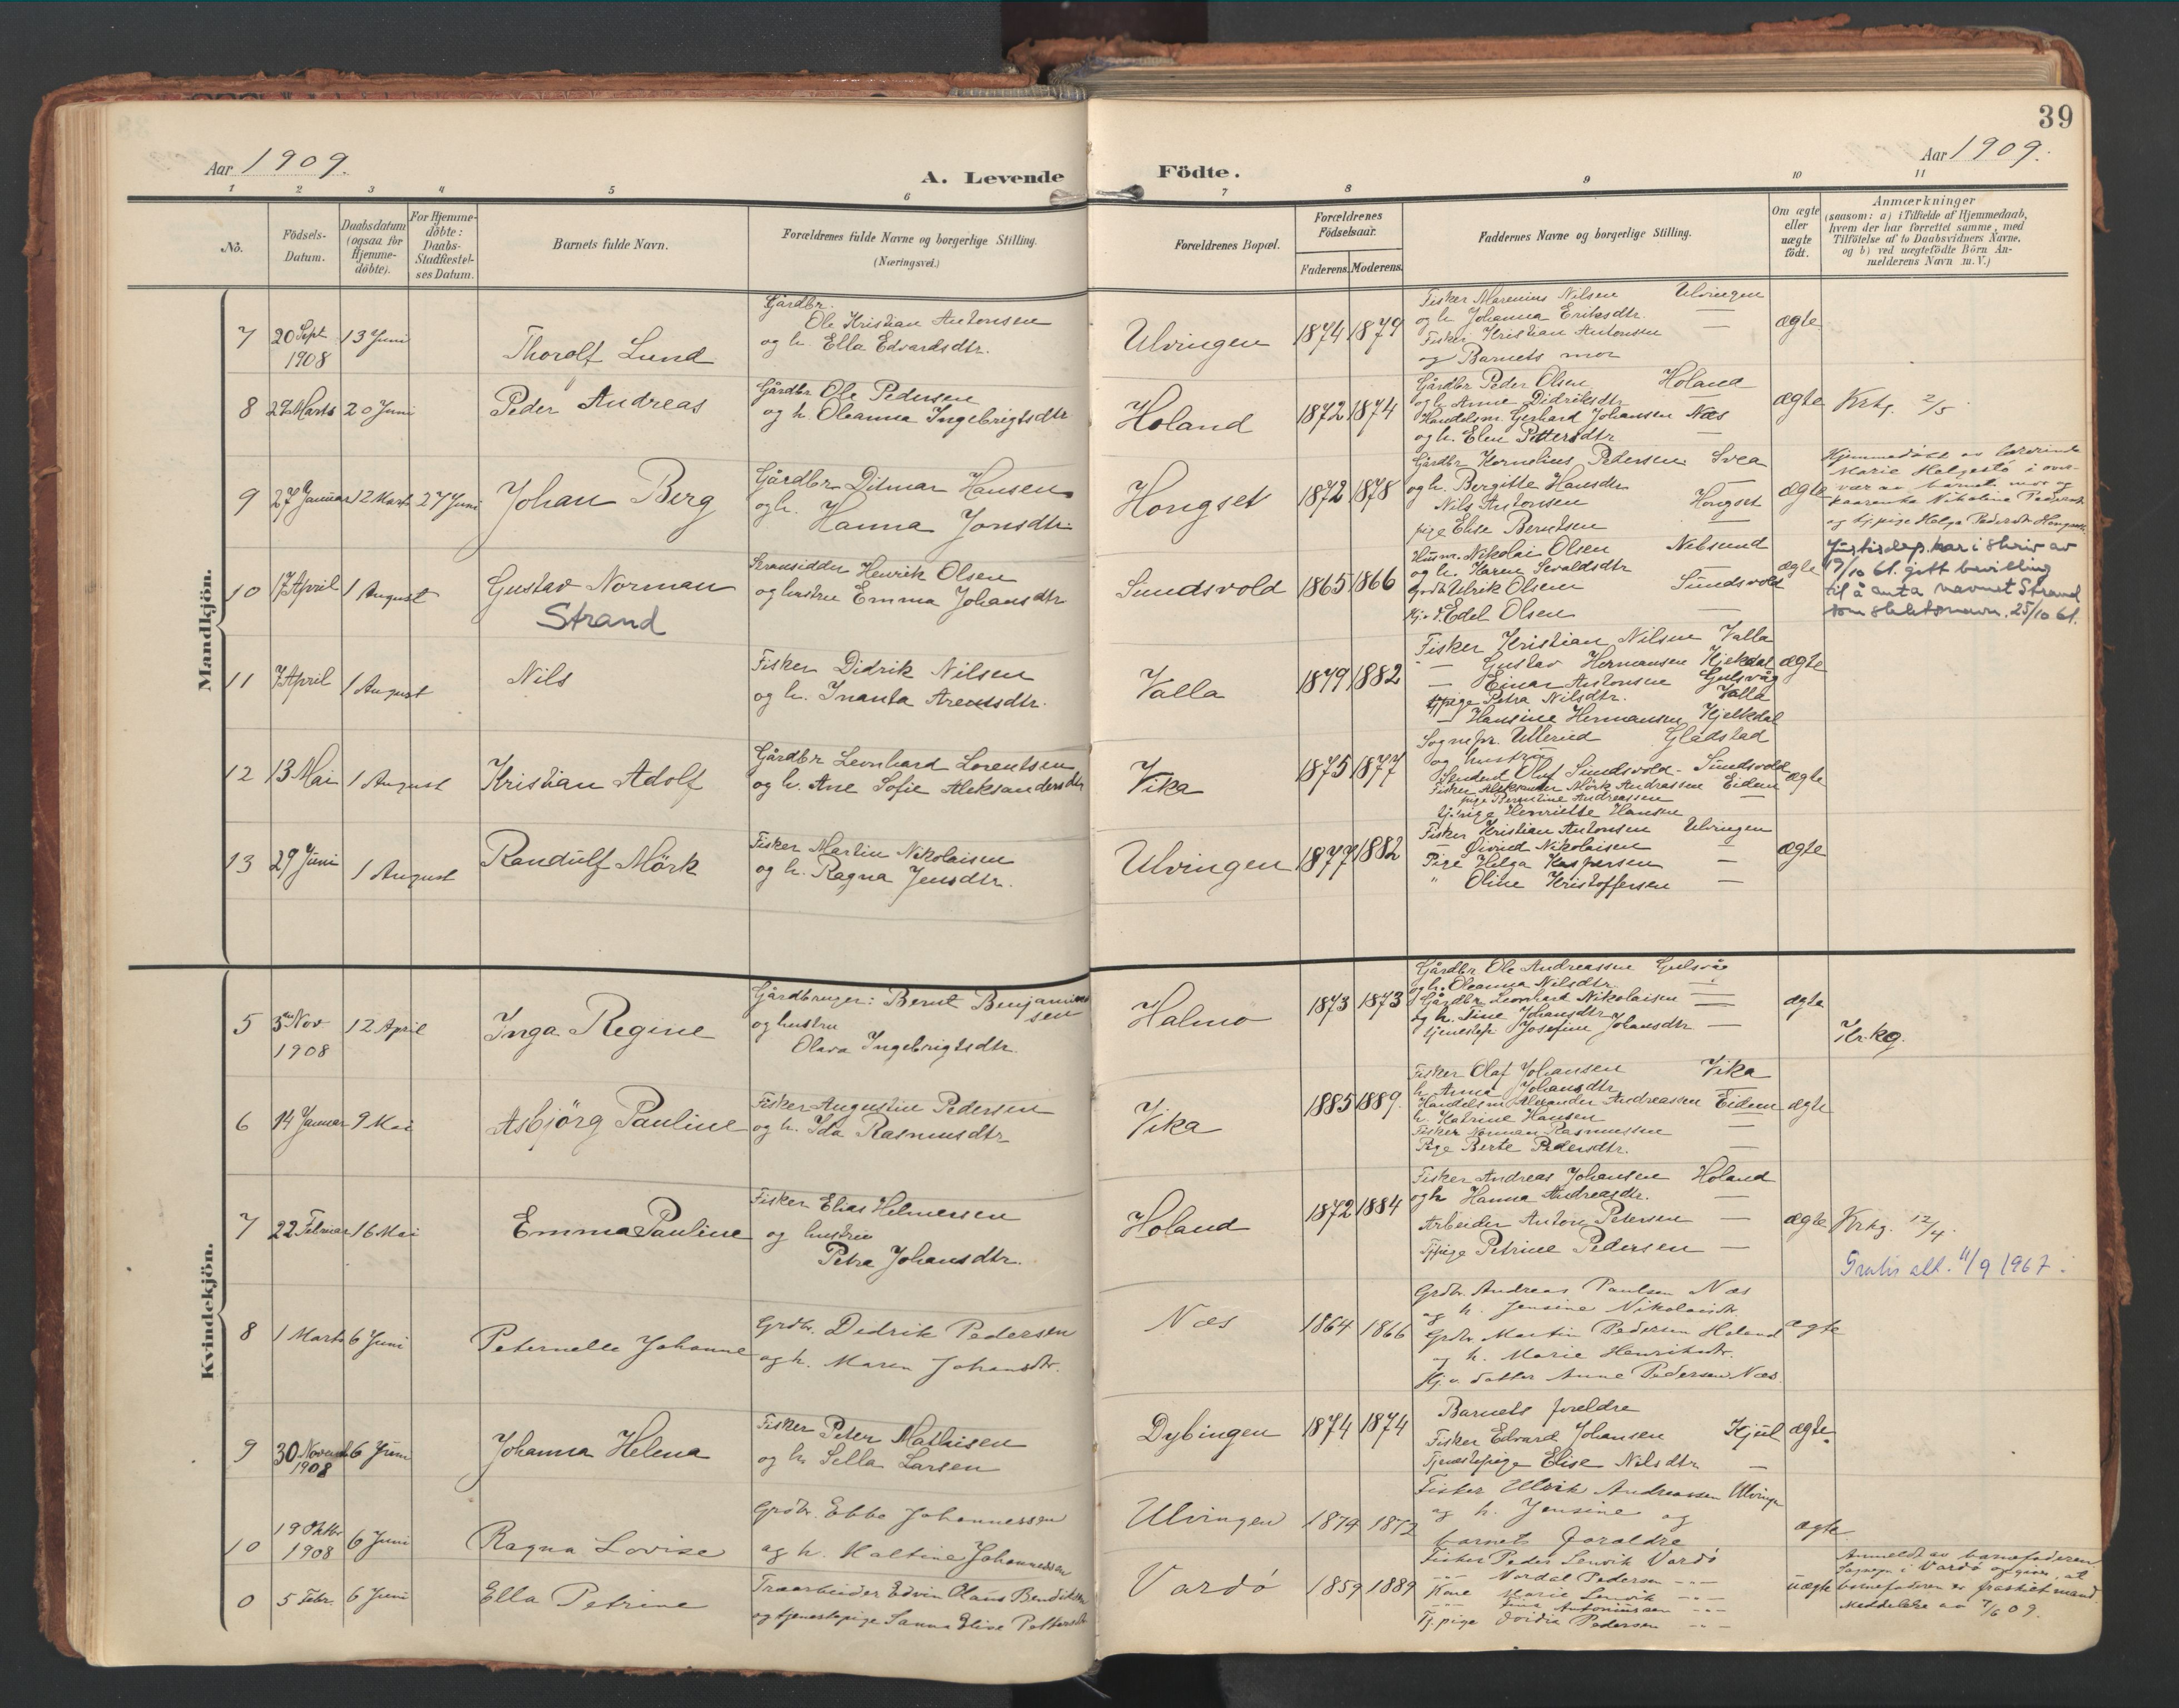 39
Aar 1909.
A. Levende Födte.
Aar 1909.
1 2 3 4 5 6 7 8 9 10 11
No.
Födsels-Datum.
Daabsdatum (ogsaa for Hjemme-döbte).
For Hjemme-döbte: Daabs-Stadfæstel-ses Datum.
Barnets fulde Navn.
Forældrenes fulde Navne og borgerlige Stilling. (Næringsvei.)
Forældrenes Bopæl.
Forældrenes Födselsaar.
Faderens. Moderens.
Faddernes Navne og borgerlige Stilling.
Om ægte eller uægte födt.
Anmærkninger
(saasom: a) i Tilfælde af Hjemmedaab,
hvem der har forrettet samme, med
Tilföielse af to Daabsvidners Navne,
og b) ved uægtefödte Börn An-
melderens Navn m. V.)
Mandkjön.
7 20 Sept 1908 13 Juni
Thorolf Lund
Gårdbr.
Ole Kristian Antonsen
og h. Ella Edvardsdtr.
Ulvingen 1874 1879
Fisker Marenius Nilsen Ulvingen
og h Johanna Eriksdtr. —
Fisker Kristian Antonsen —
og Barnets mor
ægte
8 27 Marts 20 Juni
Peder Andreas
Gårdbr Ole Pedersen
og h. Oleanna Ingebrigtsdtr
Holand 1872 1874
Gårdbr Peder Olsen Holand
og h. Anne Didriksdtr
Handelsm. Gerhard Johansen Næs
og h. Elen Pettersdtr —
ægte
Krkg. 2/5
9 27 Januar 12 Marts 27 Juni
Johan Berg
Gårdbr Ditmar Hansen
og h.
Hanna Jonsdtr.
Hongset 1872 1878
Gårdbr Kornelius Pedersen Svea
og h. Bergitte Hansdtr —
Nils Antonsen Hongset
pige Elise Berntsen —
ægte
Hjemmedöbt av lærerinde
Marie Helgestö i over-
vær av barnets mor og
Nikoline Pedersdtr
og tj. pige Helga Pedersdtr Hongset.
10 17 April 1 August
Gustav Norman
Strand
Strandsidder Henrik Olsen
og hustru Emma Johansdtr
Sundsvold 1865 1866
Husm. Nikolai Olsen Nebsund
og h. Karen Sevaldsdtr —
Ulrik Olsen Sundsvold
Edel Olsen —
ægte
Justisdep. har i skriv av
19/10 61. gitt bevilling
til å anta navnet Strand
som slektsnavn. 25/10 61.
11 7 April 1 August
Nils
Fisker Didrik Nilsen
og h. Inanta Arentsdtr.
Valla 1879 1882
Fisker Kristian Nilsen Valla
— Gustav Hermansen Kjelkdal
— Einar Antonsen Gulsvåg
tjpige Petra Nilsdtr. Valla
— Hansine Hermansen Kjelkdal
ægte
12 13 Mai 1 August
Kristian Adolf
Gårdbr Leonhard Lorentsen
og h. Ane Sofie Aleksandersdtr
Vika 1875 1877
Sognepr. Ullerud Gladstad
og hustru
Student Olaf Sundsvold - Sundsvold
Fisker Aleksander Mörk Andrassen Eidem
pige Berentine Andreassen —
tj. pige Henriette Hansen
ægte
13 29 Juni 1 August
Randulf Mörk
Fisker Martin Nikolaisen
og h. Ragna Jensdtr.
Ulvingen 1877 1882
Fisker Kristian Antonsen Ulvingen
— Öivind Nikolaisen —
Pige Helga Kaspersen —
" Oline Kristoffersen —
ægte
Kvindekjön.
5 3 Nov 1908 12 April
Inga Regine
Gårdbruger: Bernt Benjamin
sen
og hustru
Olava Ingebrigtsdtr.
Halmö 1873 1873
Gårdbr Ole Andreassen Gulsvåg
og h. Oleanna Nilsdtr —
Gårdbr Leonhard Nikolaisen —
og h. Tine Johansdtr —
tjenestep Josefine Johansdtr —
ægte
Kr.kg.
6 14 Januar 9 Mai
Asbjörg Pauline
Fisker Augustin Pedersen
og h. Ida Rasmusdtr
Vika 1885 1889.
Fisker Olaf Johansen Vika
h. Anna Johansdtr —
Handelsm Alexander Andreassen Eidem
h. Katrine Hansen —
Fisker Norman Rasmussen —
Pige Berte Pedersdtr. —
ægte
7 22 Februar 16 Mai
Emma Pauline
Fisker Elias Helmersen
og hustru
Petra Johansdtr.
Holand 1872 1884
Fisker Andreas Johansen Holand
og h Hanna Andreasdtr. —
Arbeider Anton Petersen —
Tjpige Petrine Pedersen —
ægte
Krkg. 12/4.
Gratis att. 11/9 1967.
8 1 Marts 6 Juni
Peternelle Johanne
Grdbr. Didrik Pedersen
og h. Maren Johansdtr.
Næs 1864 1866
Grdbr. Andreas Paulsen Næs
og h. Jensine Nikolaisdtr
Grdbr. Martin Pedersen Holand
og h. Marie Henriksdtr.
Hj. v. datter Anne Pedersen Næs.
ægte
9 30 Novemb 1908 6 Juni
Johanna Helena
Fisker Peter Mathisen
og h. Sella Larsen
Dybingen 1874 1874
Barnets foreldre
Fisker Edvard Johansen Kjul
Tjenestepige Elise Nilsdtr —
ægte
10 19 Oktbr 1908 6 Juni
Ragna Lovise
Grdbr. Ebbe Johannessen
og h. Maltine Johannessen
Ulvingen 1874 1872
Fisker Ulrik Andreassen Ulvingen
og h. Jensine og
barnets foraldre
ægte
0 5 Febr. 6 Juni
Ella Petrine
Træarbeider Edvin Olaus Bendiksen
og tjenestepige Sanna Elise Pettersdtr
Vardö 1859 1889
Fisker Peder Lenvik Vardö
-"- Nordal Pedersen -"-
Kone Marie Lenvik -"-
-"- Antoniussen -"-
Tj. pige Pedersen -"-
uægte
Anmeldt av barnefaderen.
Sognepr. i Vardö opgiver, at
barnefaderen er fraskilt mand.
Meddelelse av 7/6 09.